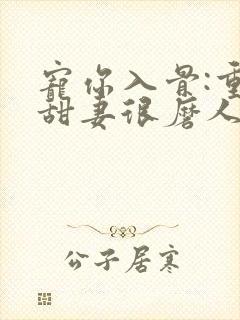 寵你入骨:重
甜妻很磨人
公子居寒